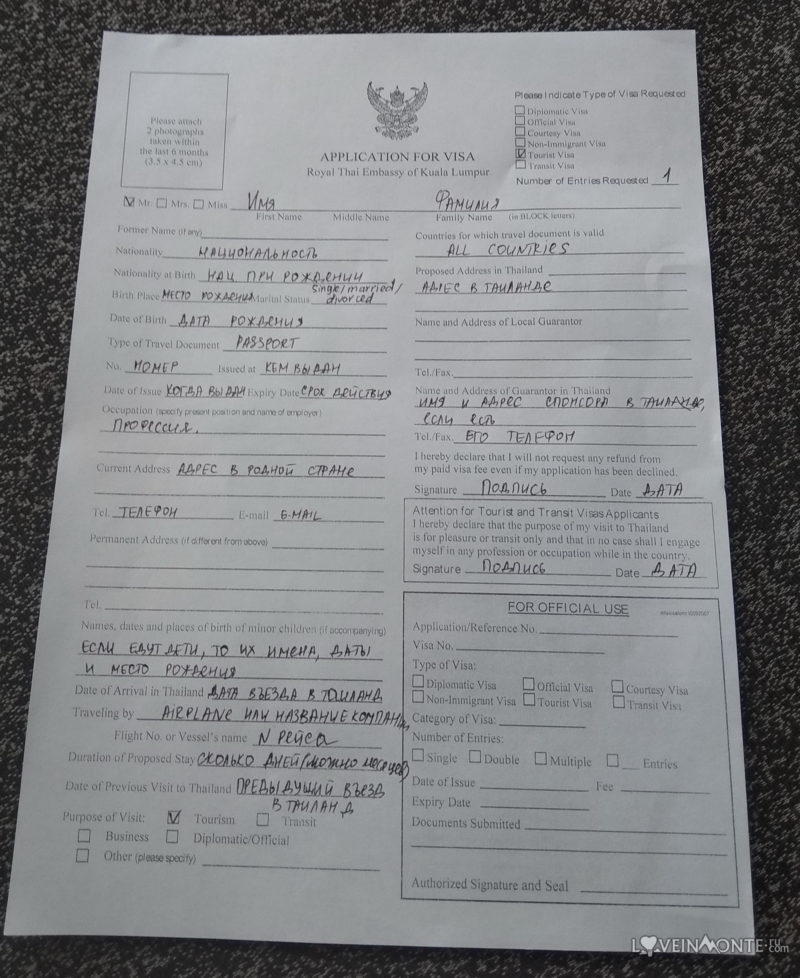 Please attach
2 photographs
taken within
the last 6 months
(3.5 x 4.5 cm)
APPLICATION FOR VISA
Royal Thai Embassy of Kuala Lumpur
Please Indicate Type of Visa Requested
Diplomatic Visa
Official Visa
Courtesy Visa
Non-Immigrant Visa
Tourist Visa
Transit Visa
Number of Entries Requested 1
Mr. Mrs. Miss Имя Фамилия
First Name Middle Name Family Name (in BLOCK letters)
Former Name (if any)
Nationality НАЦИОНАЛЬНОСТЬ
Nationality at Birth НАЦ ПРИ РОЖДЕНИИ
Birth Place МЕСТО РОЖДЕНИЯ Marital Status single/married/
divorced
Date of Birth ДАТА РОЖДЕНИЯ
Type of Travel Document PASSPORT
No. НОМЕР Issued at КЕМ ВЫДАН
Date of Issue КОГДА ВЫДАН Expiry Date СРОК ДЕЙСТВИЯ
Occupation (specify present position and name of employer)
ПРОФЕССИЯ.
Current Address АДРЕС В РОДНОЙ СТРАНЕ
Tel. ТЕЛЕФОН E-mail E-MAIL
Permanent Address (if different from above)
Tel.
Names, dates and places of birth of minor children (if accompanying)
ЕСЛИ ЕДУТ ДЕТИ, ТО ИХ ИМЕНА, ДАТЫ
И МЕСТО РОЖДЕНИЯ
Date of Arrival in Thailand ДАТА ВЪЕЗДА В ТАИЛАНД
Traveling by AIRPLANE ИЛИ НАЗВАНИЕ КОМПАНИИ
Flight No. or Vessel's name N рейса
Duration of Proposed Stay СКОЛЬКО ДНЕЙ (МОЖНО МЕСЯЦЕВ)
Date of Previous Visit to Thailand ПРЕДЫДУЩИЙ ВЪЕЗД
В ТАИЛАНД
Purpose of Visit: Tourism Transit
Business Diplomatic/Official
Other (please specify)
Countries for which travel document is valid
ALL COUNTRIES
Proposed Address in Thailand
АДРЕС В ТАИЛАНДЕ
Name and Address of Local Guarantor
Tel./Fax.
Name and Address of Guarantor in Thailand
ИМЯ И АДРЕС СПОНСОРА В ТАИЛАНДЕ,
если есть
Tel./Fax. ЕГО ТЕЛЕФОН
I hereby declare that I will not request any refund from
my paid visa fee even if my application has been declined.
Signature ПОДПИСЬ Date ДАТА
Attention for Tourist and Transit Visas Applicants
I hereby declare that the purpose of my visit to Thailand
is for pleasure or transit only and that in no case shall I engage
myself in any profession or occupation while in the country.
Signature ПОДПИСЬ Date ДАТА
FOR OFFICIAL USE
Application/Reference No.
Visa No.
Type of Visa:
Diplomatic Visa Official Visa Courtesy Visa
Non-Immigrant Visa Tourist Visa Transit Visa
Category of Visa:
Number of Entries:
Single Double Multiple Entries
Date of Issue Fee
Expiry Date
Documents Submitted
Authorized Signature and Seal
LOVEINMONTE.ru
.com